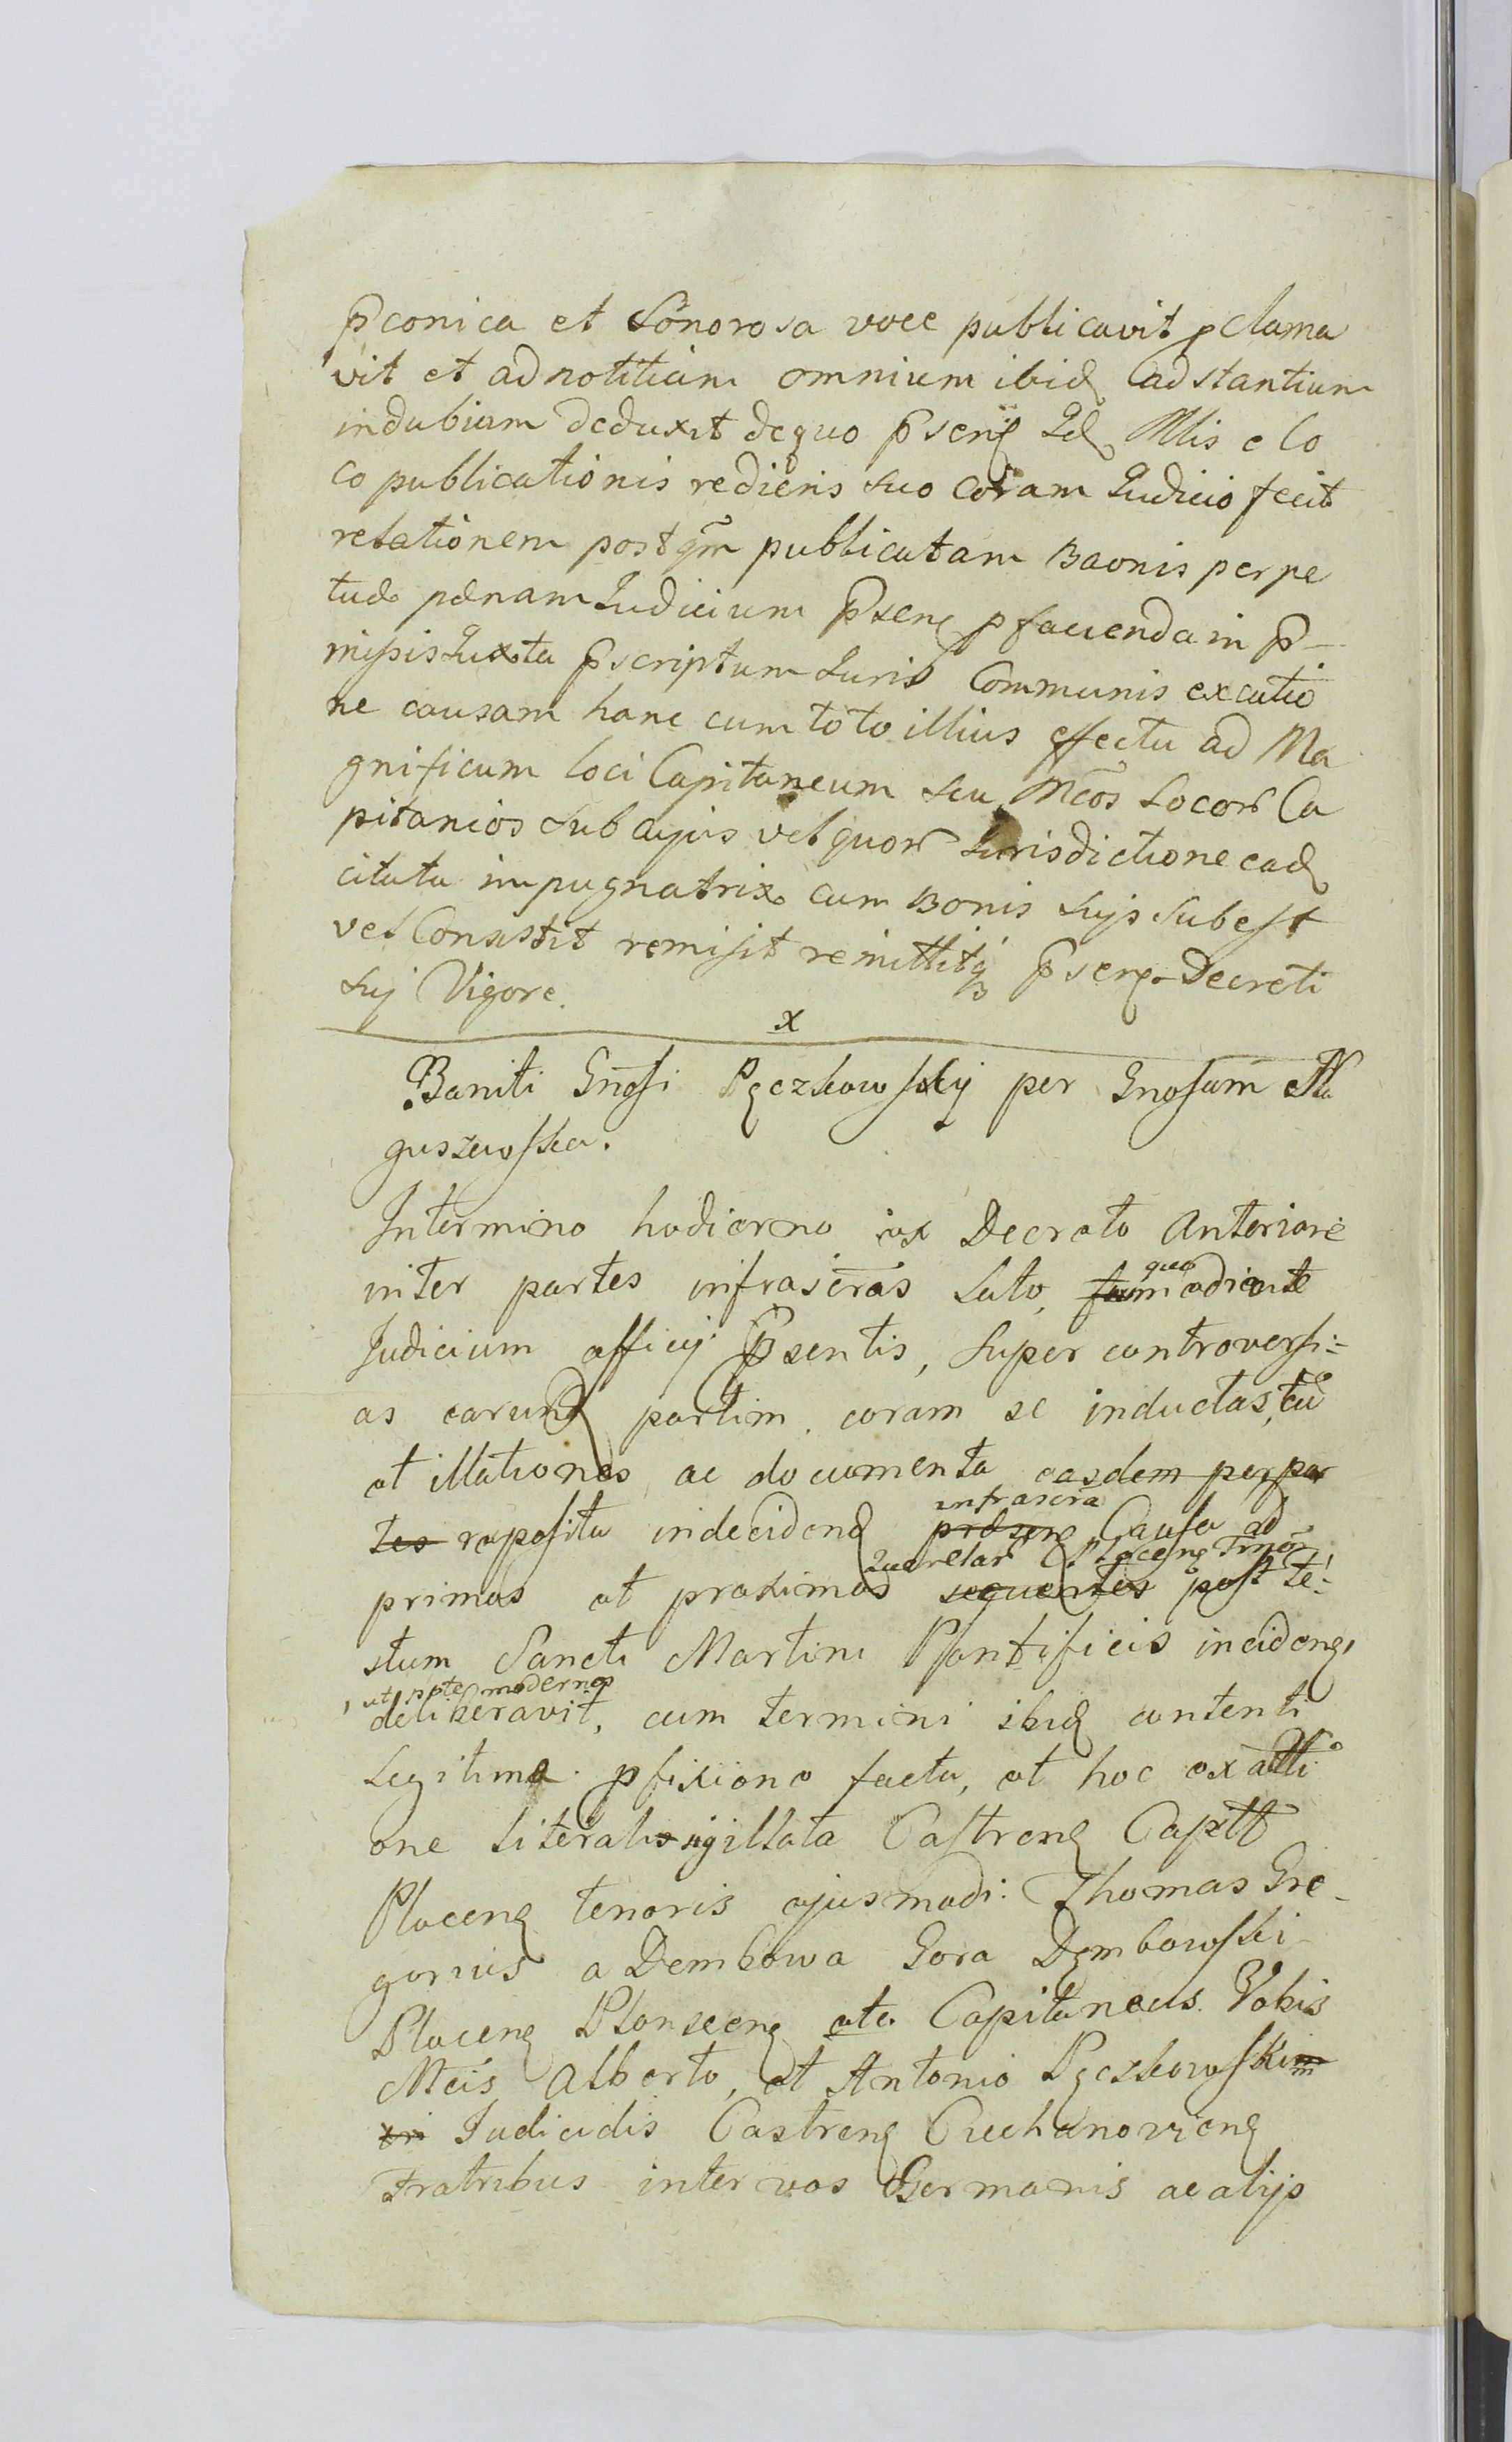 p̄conica et Sonorosa voce publicavit pclama
vit et ad notitiam omnium ibid adstantium
indubiam deduxit de quo p̄sens Idd Mlis e lo
co publicationis rediens suo coram Judicio fecit
relationem post qm̄ publicatam Baonis perpe
tuæ pœnam Judicium p̄sens p facienda in p̄-
missis Juxta p̄scriptum Juris Communis excutio
ne causam hanc cum toto illius effectu ad Ma
gnificum loci Capitaneum seu Mcos Locor Ca
pitaneos sub cujus vel quor Jurisdictione ead
citata impugnatrix cum Bonis suis subest
vel Consistit remisit remittitq p̄sens Decreti
sui Vigore.
x
Baniti Gnosi Pęczkowskÿ per Gnosam Na
guszewska.
In termino hodierno ex Decreto Anteriore
inter partes infrascras lato, quo mediante
Judicium officij p̄sentis, super controversi=
as earund partim coram se inductas, tū
et illationes ac documenta easdem per par
tes reposita in decidend præsens infrascra Causa ad
primos et proximos sequentes Querelar Plocens Tmōs post fe=
stum Sancti Martini Pontificis incidens,
, ut pote modernos
deliberavit, cum termini ibid contenti
Legitima pfixione facta, et hoc ex actti
one literali sigillata Castrens Capitt
Plocens tenoris ejusmodi: Thomas Gre-
gorius a Dembowa Gora Dembowski
Plocens Plonscens etc Capitaneus. Vobis
Mcis Alberto, et Antonio Pęczkowskim
Judicidis Castrens Ciechanoviens
Fratribus inter vos Germanis ac alijs